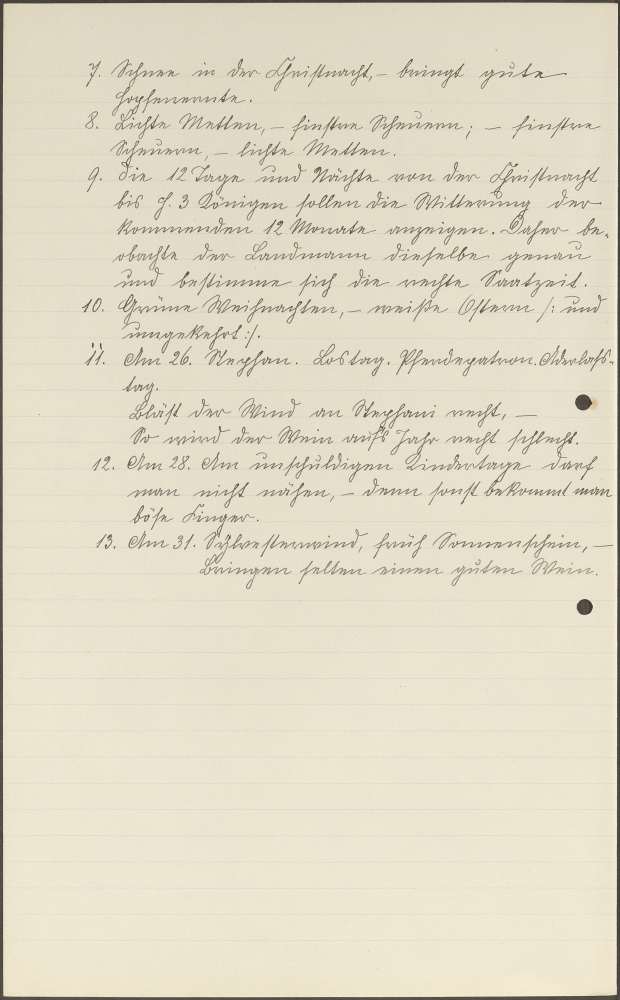 7. Schnee in der Christnacht, – bringt gute
Hopfenernte.
8. Lichte Metten, – finstre Scheuern; – finstre
Scheuern, – lichte Metten.
9. Die 12 Tage und Nächte von der Christnacht
bis H. 3 Königen sollen die Witterung der
kommenden 12 Monate anzeigen. Daher be-
obachte der Landmann dieselbe genau
und bestimme sich die rechte Saatzeit.
10. Grüne Weihnachten, – weiße Ostern /: und
umgekehrt :/.
11. Am 26. Stephan. Lostag. Pferdepatron. Aderlaß-
tag.
Bläst der Wind an Stephani recht, –
So wird der Wein aufs Jahr recht schlecht.
12. Am 28. Am unschuldigen Kindertage darf
man nicht nähen, – denn sonst bekommt man
böse Finger.
13. Am 31. Sylvesterwind, früh Sonnenschein, –
Bringen selten einen guten Wein.